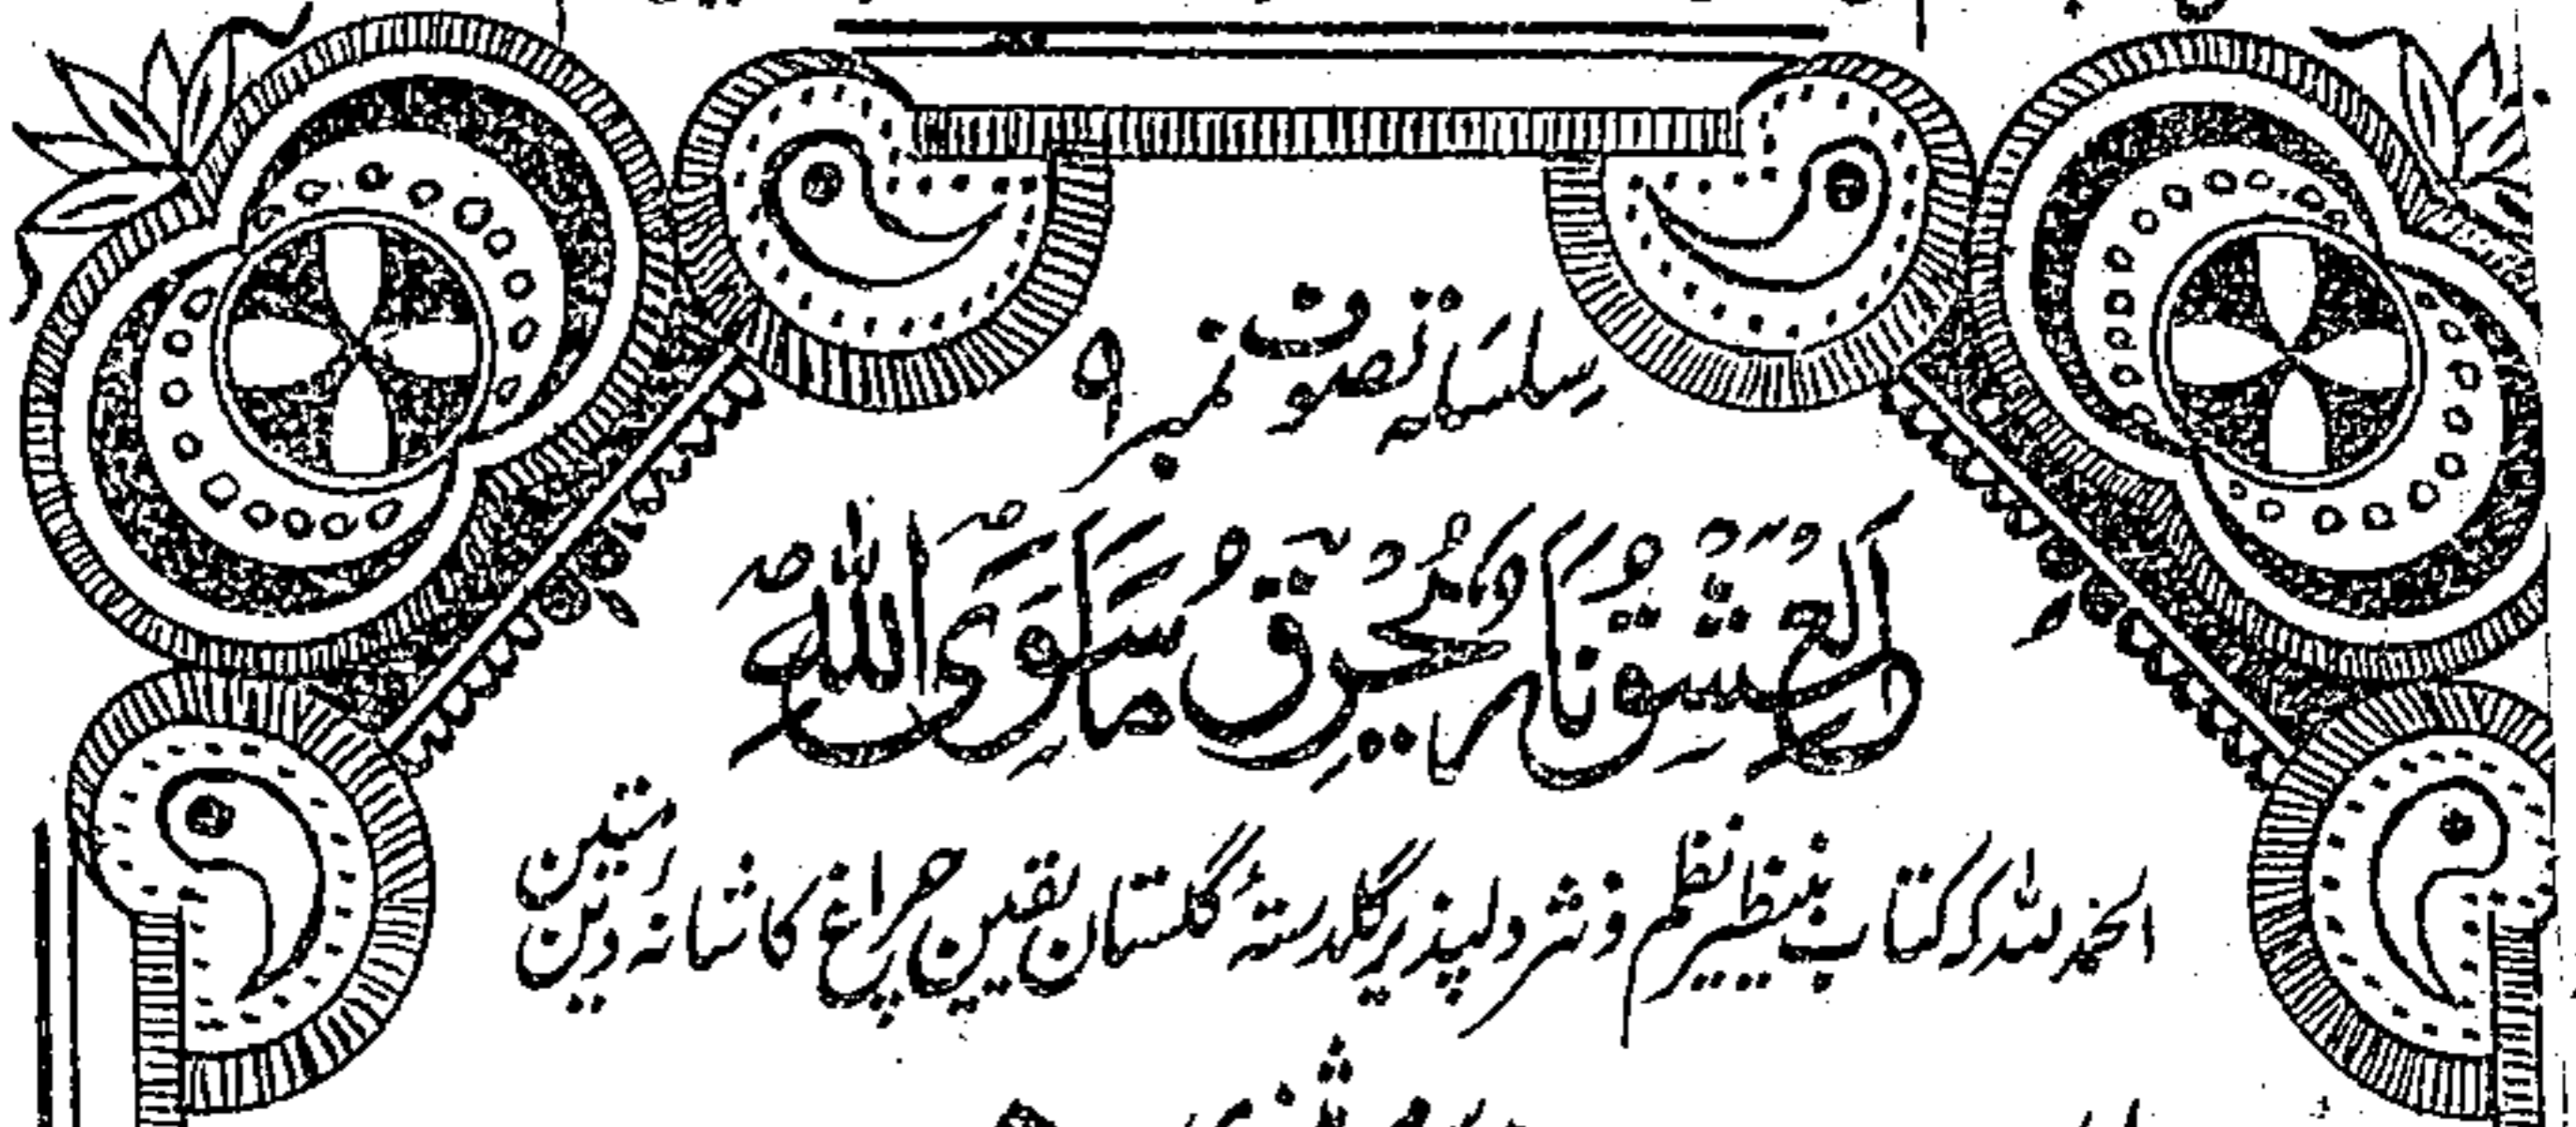 سلسلۂ تصوف نمبر ۹
اَلْعِشْقُ نَارٌ یُّحْرِقُ مَا سِوَی اللّٰہِ
الحمد للہ کہ کتاب بینظیر نظم و نثر دلپذیر گلدستۂ گلستان یقین چراغ کاشانہ دین متین